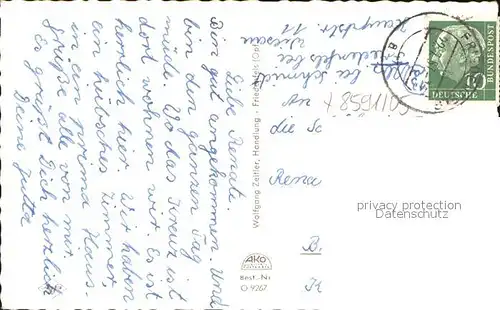 Liebe Renate.
Bin gut angekommen. Und
bin den ganzen Tag
müde. Wo das Kreuz ist
dort wohnen wir. Es ist
herrlich hier. Wir haben
ein hübsches Zimmer,
in ein prima Haus.
Grüße alle von mir.
Es grüßt Dich herzlich
Deine Jutta
Wolfgang Zeitler, Handlung - Friedenfels (Opf.)
AKO
Best.-Nr.
O 9267
Hauptstr. 11
bei
bei Schmid
die
Rena
B.
K
DEUTSCHE
BUNDESPOST
10
privacy protection
Datenschutz